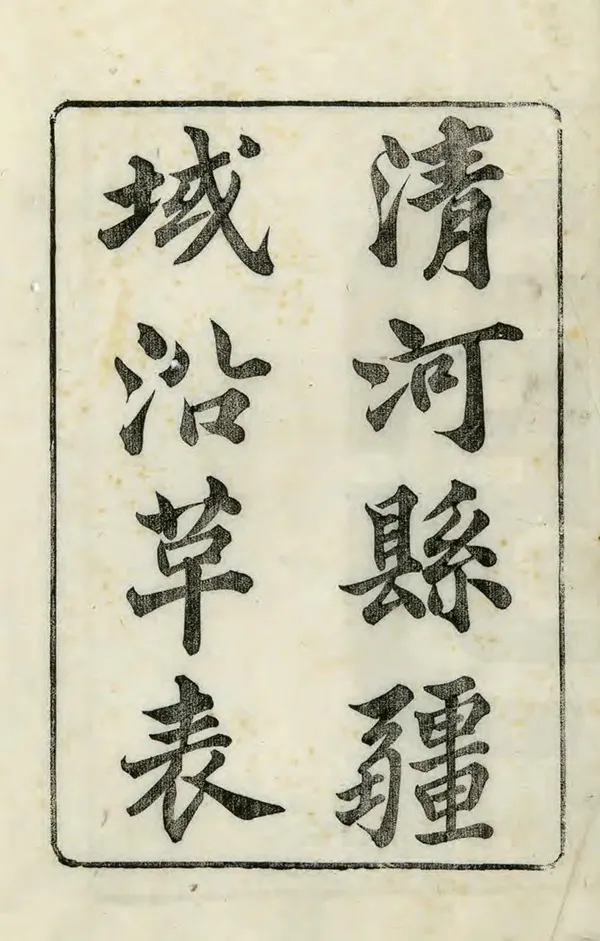 清河縣疆
域沿草表